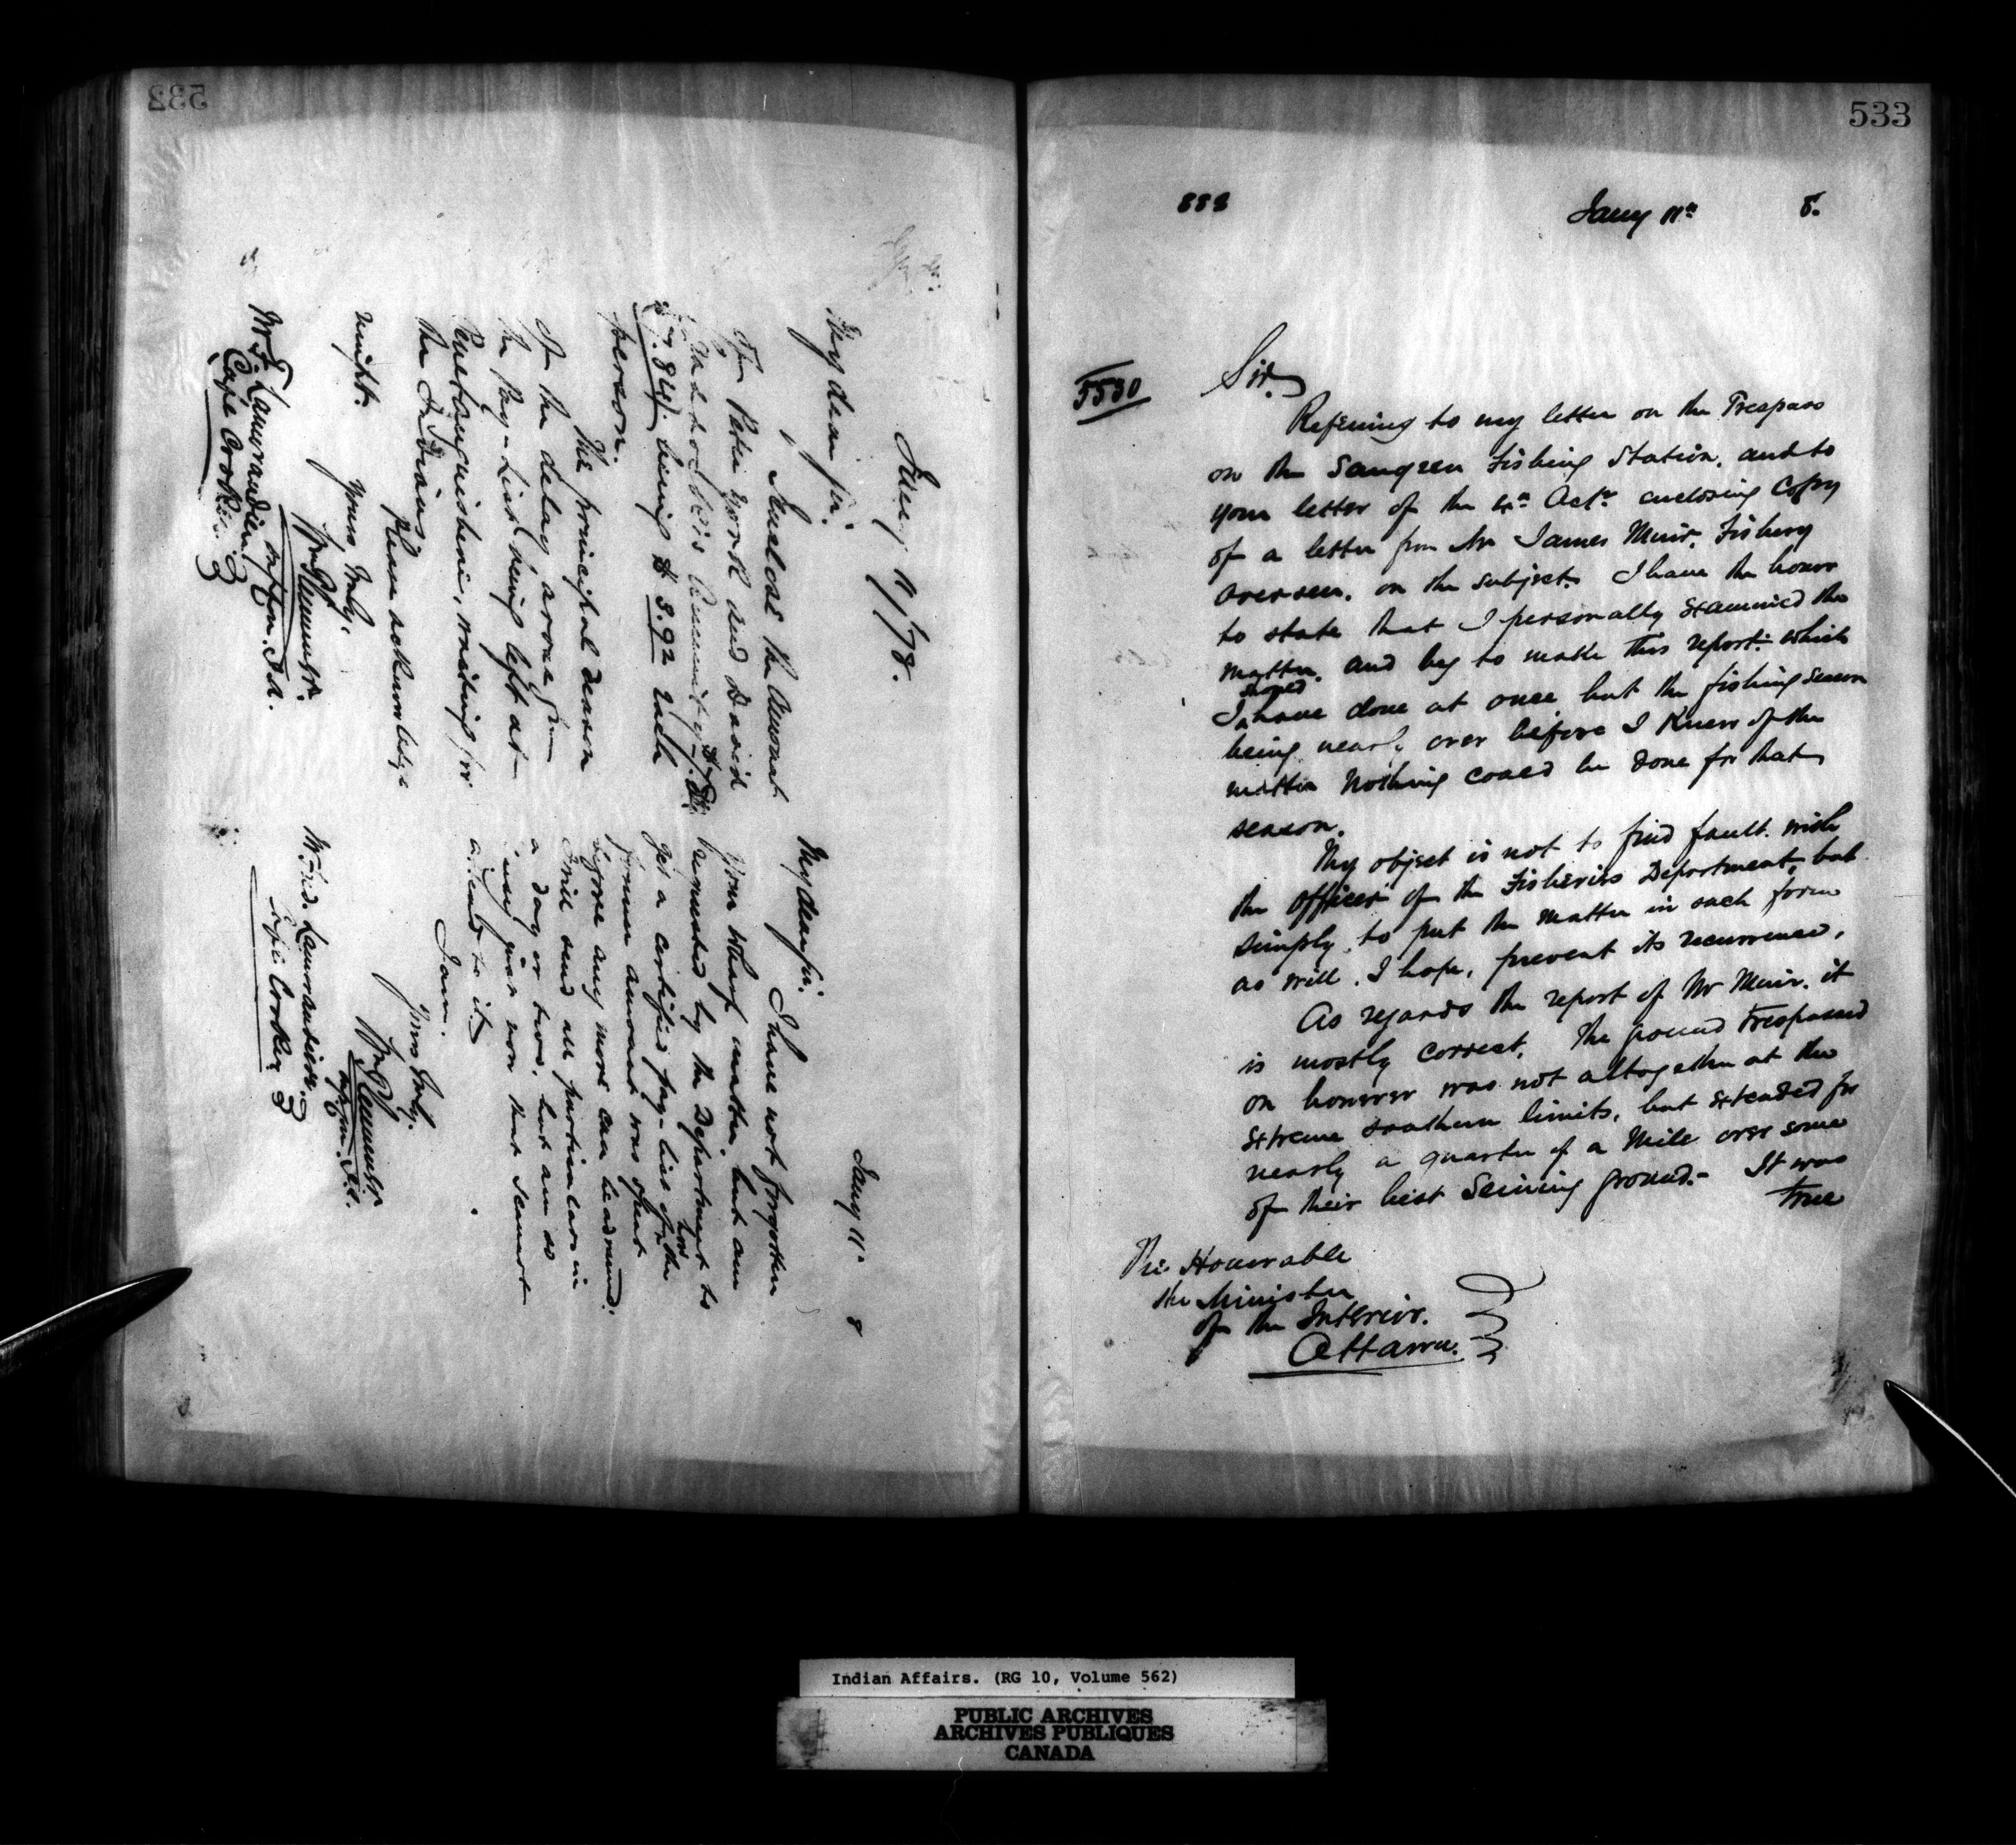 532
Jany 11/78.
My dear Sir.
I Enclose the amount
for Peter York and David
Annuity
$7.84 being $3.92 each
person.
The principal reason
for the delay arose from
the Pay-List being left at
Penetanguishene, waiting for
the Indians
Please acknowledge
receipt.
Yours truly,
Wm Plummer
Mr F. Lamorandiere
Cape Croker
Jany 11 8
My dear Sir.
I have not forgotten
your Wharf matter. but am
requested by the Department to
get a certified pay-list of how the
former amount was spent
before any more can be advanced.
I will send all particulars in
a day or two, but am so
busy just now that I cannot
attend to it.
I am.
Yours truly.
Wm Plummer
Mr Fred. Lamorandiere.
Cape Croker
533
888
Jany 11th 8.
5530
Sir,
Refering to my letter on the Trespass
on the Saugeen Fishing Station, and to
your letter of the Octr enclosing Copy
of a letter from Mr James Muir, Fishery
Overseer, on the subject. I have the honor
to state that I personally examined the
matter, and beg to make this report: which
I should have done at once but the fishing season
being nearly over before I knew of the
matter nothing could be done for that
season.
My object is not to find fault with
the officer of the Fisheries Department, but
simply to put the matter in such form
as will, I hope, prevent its recurrence.
As regards the report of Mr Muir, it
is mostly correct. The ground trespassed
on however was not altogether at the
extreme southern limits, but extended for
nearly a quarter of a Mile over some
of their best Seining ground.- It was
true
The Honorable
the Minister
of the Interior.
Ottawa.
Indian Affairs. (RG 10, Volume 562)
PUBLIC ARCHIVES
ARCHIVES PUBLIQUES
CANADA